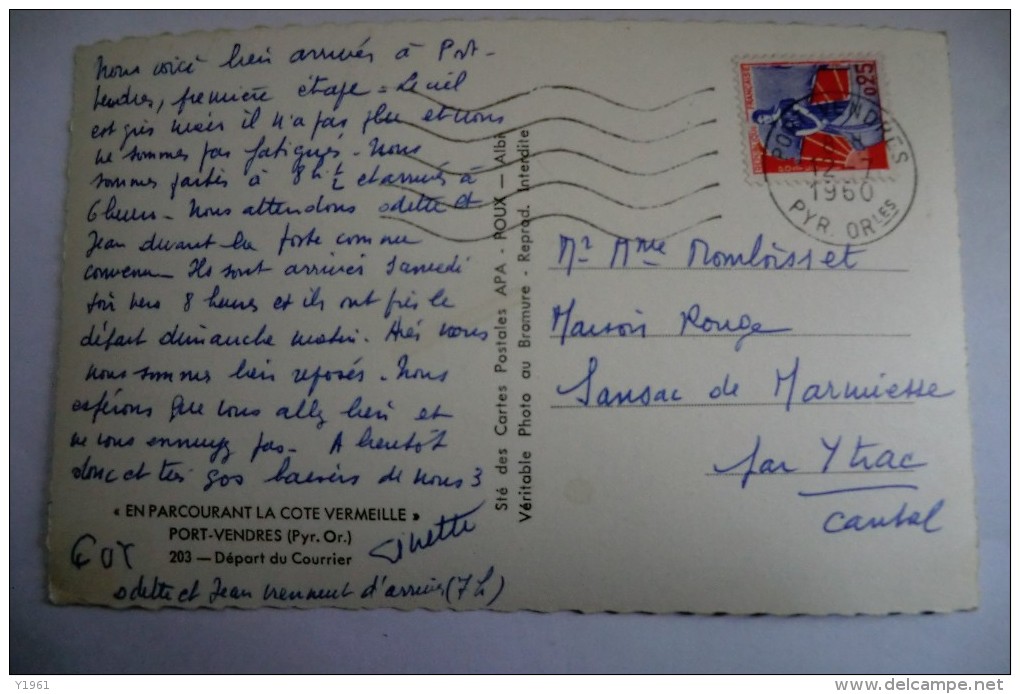 Nous voici bien arrivés à Port-
Vendres, première étape - Le ciel
est gris mais il n'a pas plu et nous
ne sommes pas fatigués - Nous
sommes partis à 8h 1/2 et arrivés à
6 heures - Nous attendons Odette et
Jean devant la poste comme
convenu - Ils sont arrivés Samedi
soir vers 8 heures et ils ont pris le
départ dimanche matin.
nous sommes bien reposés - Nous
espérons que vous allez bien et
ne vous ennuyez pas - A bientôt
donc et très gos baisers de nous 3
« EN PARCOURANT LA COTE VERMEILLE »
PORT-VENDRES (Pyr. Or.)
203 — Départ du Courrier
Ginette
Guy
Odette et Jean viennent d'arriver (7h)
Sté des Cartes Postales APA - ROUX — Albi
Véritable Photo au Bromure - Reprod. Interdite
FRANÇAISE
0,25
PORT VENDRES
12
1960
PYR. ORLES
Mr Mme Momboisset
Maison Rouge
Sansac de Marmiesse
par Ytrac
Cantal
Y1961
delcampe.net